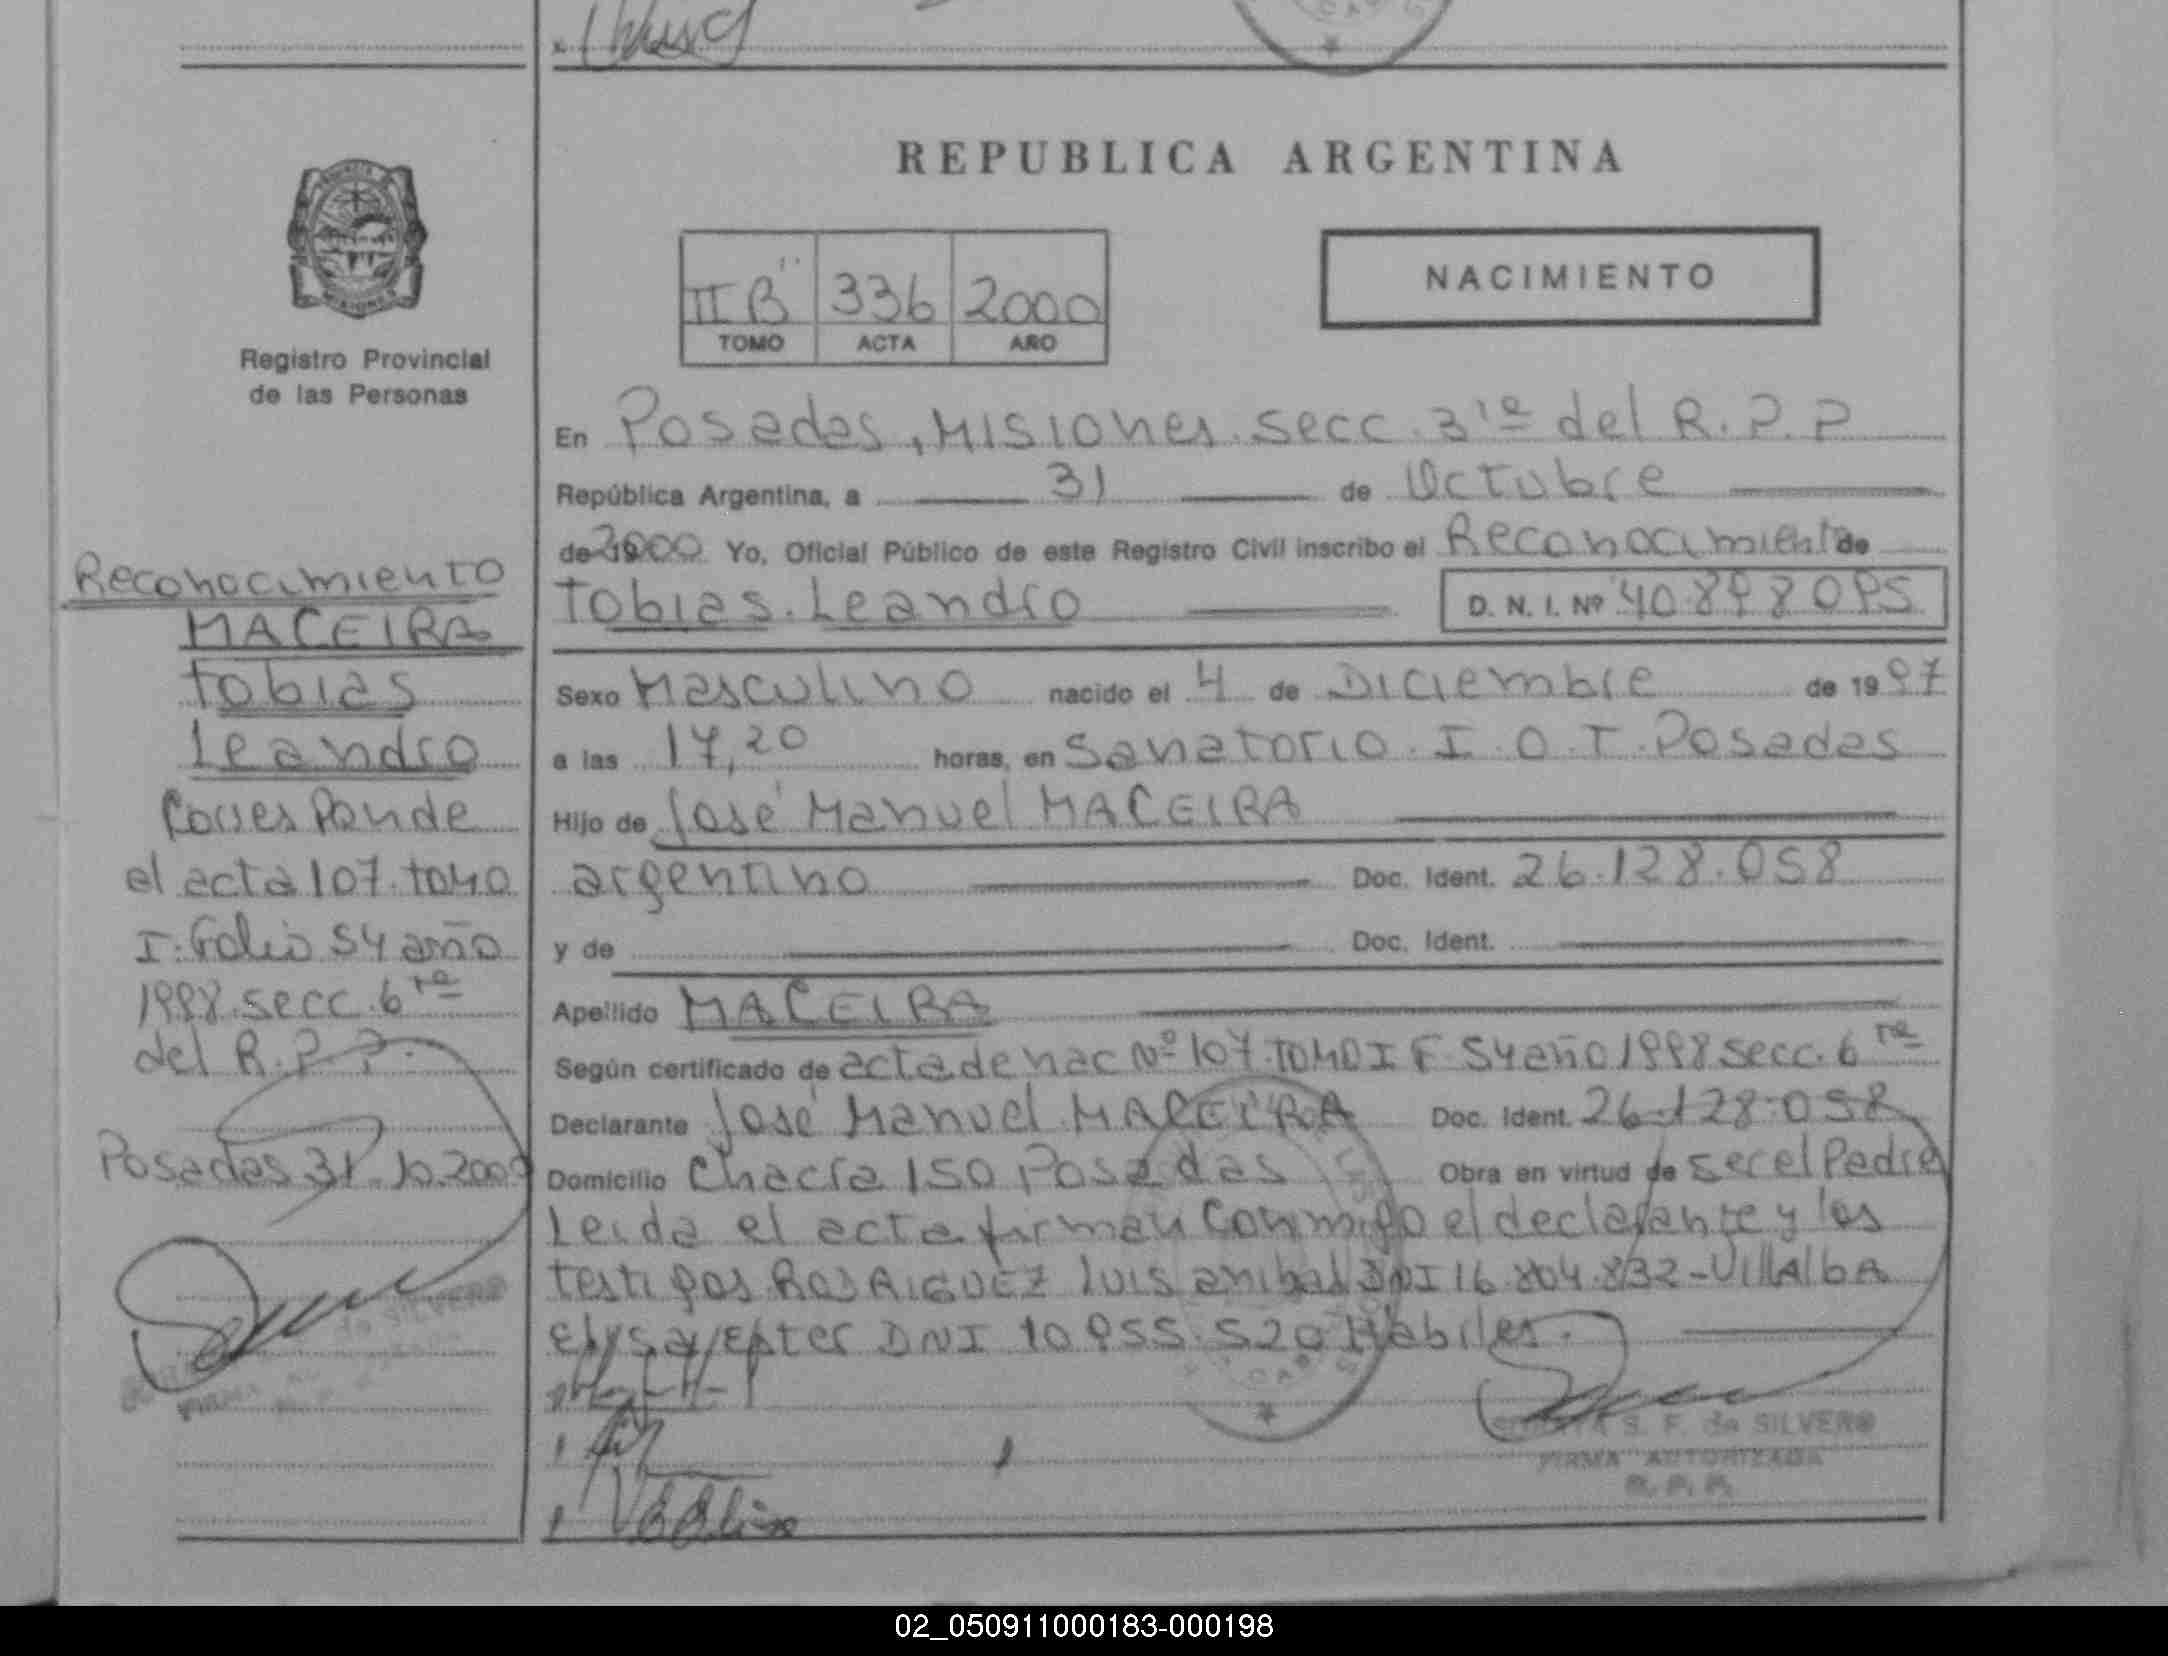 REPUBLICA ARGENTINA
NACIMIENTO
II B" 336 2000
TOMO ACTA AÑO
Registro Provincial
de las Personas
En Posadas, Misiones. secc. 3ra del R.P.P
República Argentina, a 31 de Octubre
de 19 2000 Yo, Oficial Público de este Registro Civil inscribo el Reconocimiento de
Tobias. Leandro D. N. I. Nº 40.898095
Sexo Masculino nacido el 4 de Diciembre de 1997
a las 17,20 horas, en Sanatorio. I. O. T. Posadas
Hijo de José Manuel MACEIRA
argentino Doc. Ident. 26.128.058
y de Doc. Ident.
Apellido MACEIRA
Según certificado de acta de nac Nº 107. TOMO I F. 54 año 1998 secc. 6ta
Declarante José Manuel MACEIRA Doc. Ident. 26.128.058
Domicilio Chacra 150 Posadas Obra en virtud de ser el Padre
Leida el acta firman Conmigo el declarante y los
testigos RODRIGUEZ LUIS anibal DNI 16.804.832-VIllAlbA
DNI 10.955.520 Habiles.
S. F. de SILVERO
FIRMA AUTORIZADA
R. P. P.
Reconocimiento
MACEIRA
tobias
Leandro
Corresponde
al acta 107. tomo
I. Folio 54 año
1998. secc. 6ta
del R.P.P.
Posadas 31.10.2000
de SILVERO
FIRMA
02_050911000183-000198